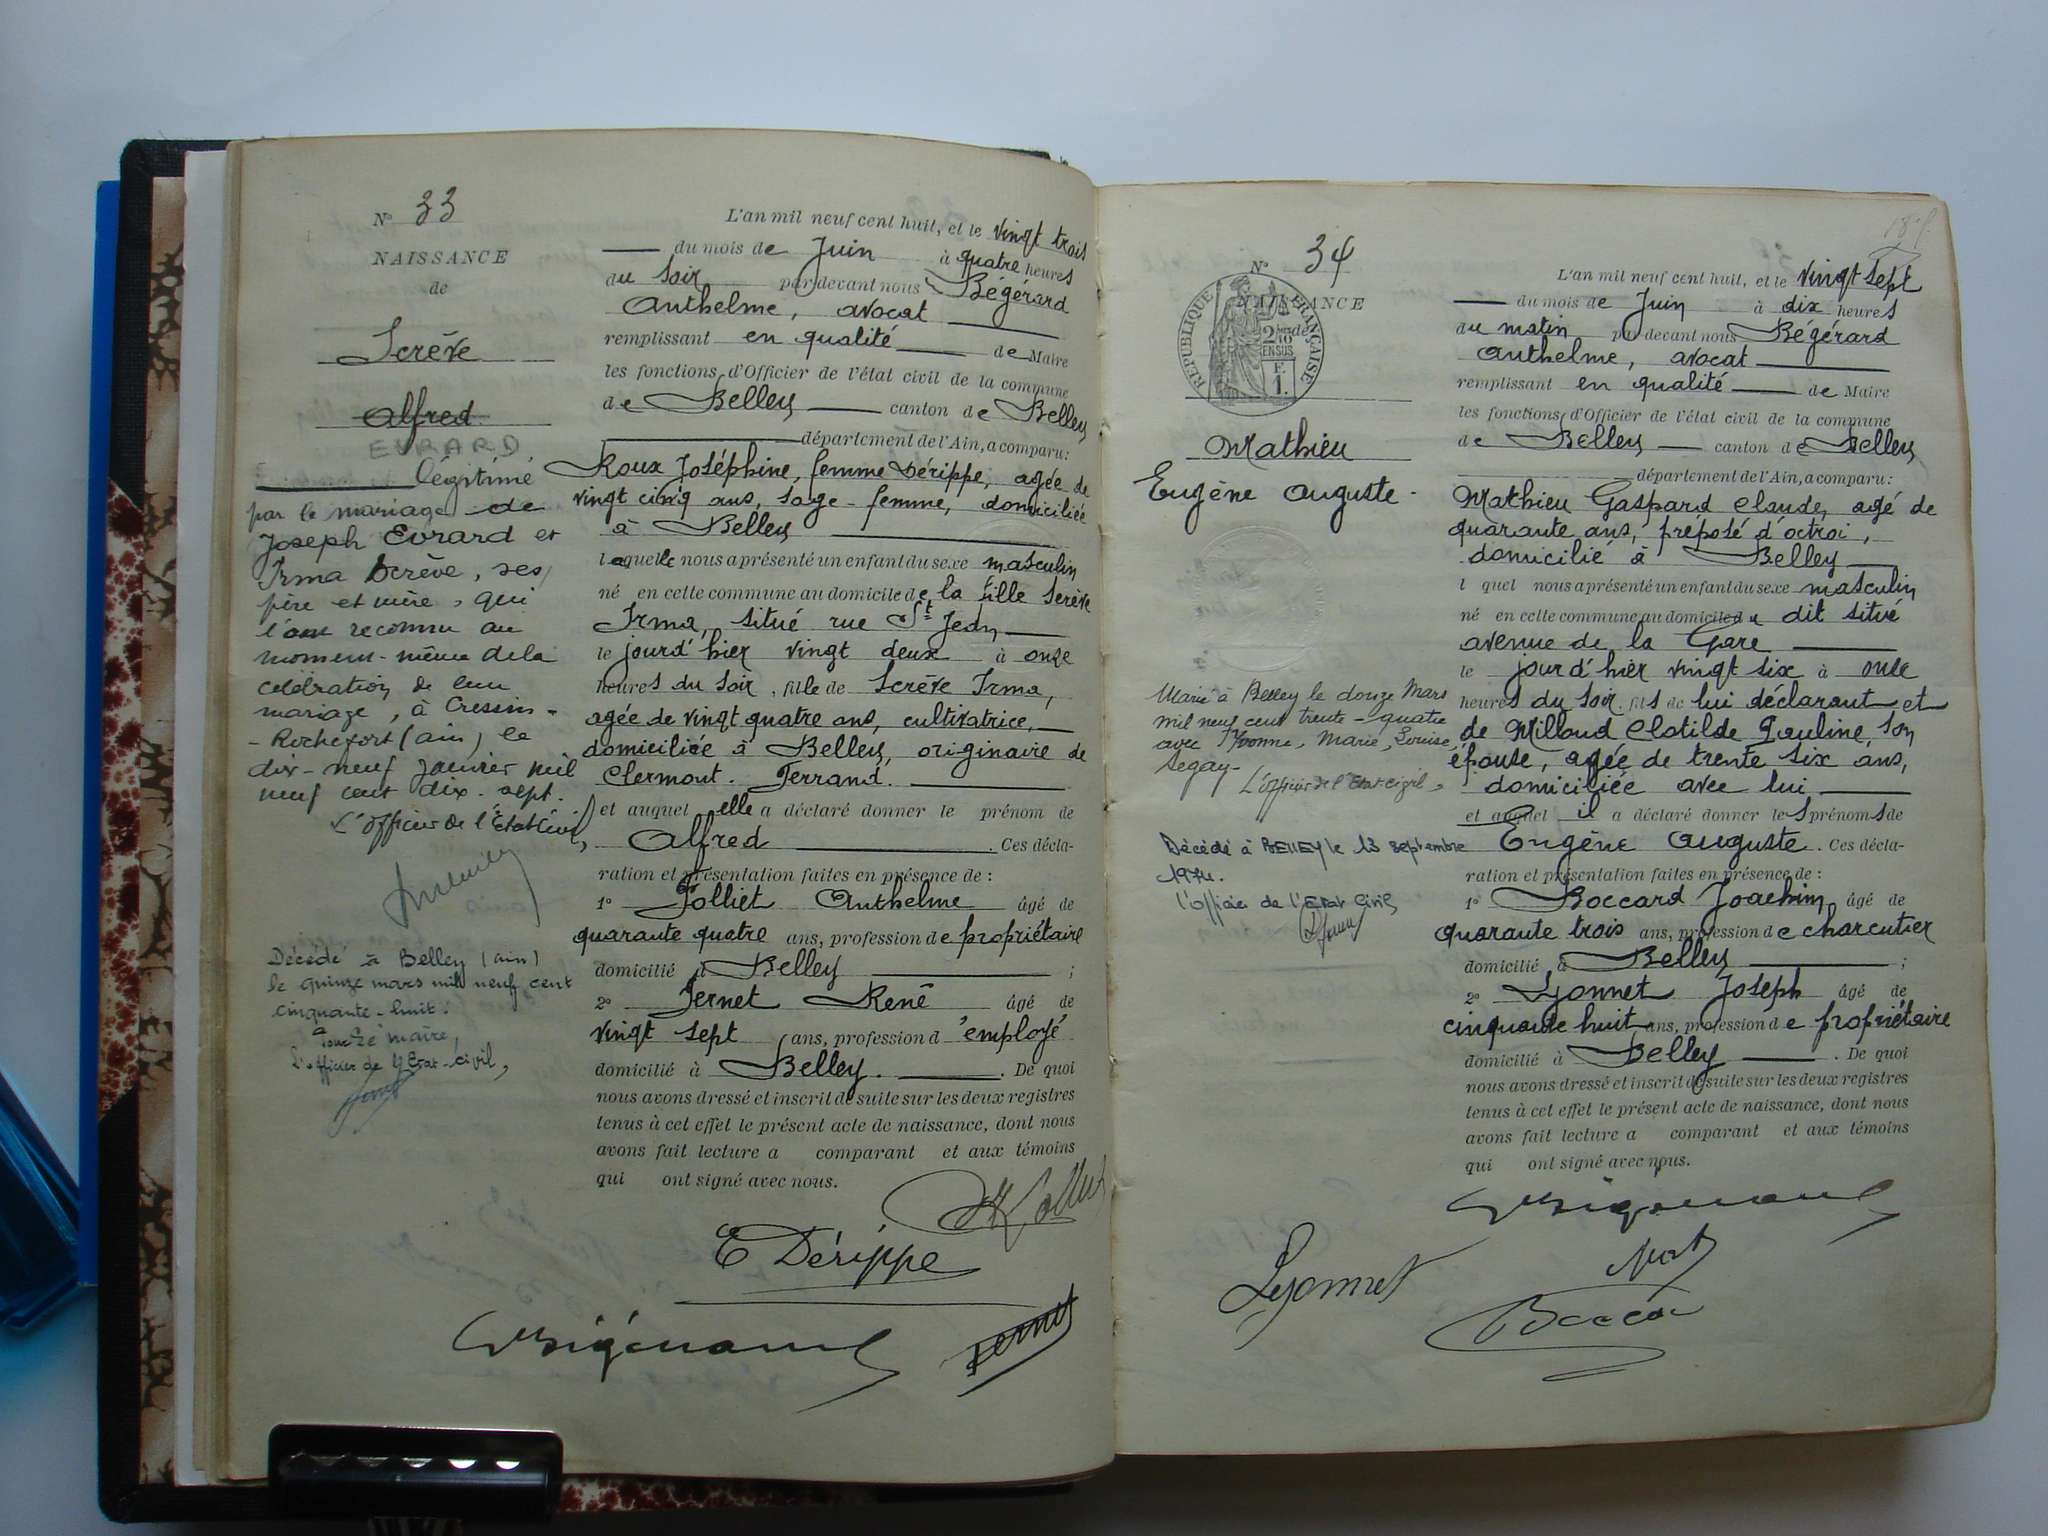 N° 33
NAISSANCE
de
Screve
Alfred
EVRARD
légitimé
par le mariage de
Joseph Evrard et
Irma Screve, ses
père et mère, qui
l'ont reconnu au
moment même de la
célébration de leur
mariage, à Cressin-
-Rochefort (ain) le
dix-neuf janvier mil
neuf cent dix-sept.
L'officier de l'Etat Civil,
Décédé à Belley (ain)
le quinze mars mil neuf cent
cinquante-huit.
maire,
l'officier de l'Etat-civil,
L'an mil neuf cent huit, et le vingt trois
du mois de Juin à quatre heures
du soir par devant nous Bégérard
Anthelme, avocat
remplissant en qualité de Maire
les fonctions d'Officier de l'état civil de la commune
de Belley canton de Belley
département de l'Ain, a comparu:
Roux Joséphine, femme Dérippe, agée de
vingt cinq ans, sage-femme, domiciliée
à Belley
laquelle nous a présenté un enfant du sexe masculin
né en cette commune au domicile de la fille Screve
Irma, situé rue St Jean
le jourd'hier vingt deux à onze
heures du soir, fils de Screve Irma,
agée de vingt quatre ans, cultivatrice,
domiciliée à Belley, originaire de
Clermont-Ferrand.
et auquel elle a déclaré donner le prénom de
Alfred . Ces décla-
ration et présentation faites en présence de :
1° Jolliet Anthelme âgé de
quarante quatre ans, profession de propriétaire
domicilié à Belley ;
2° Fernet René âgé de
vingt sept ans, profession d'employé
domicilié à Belley. . De quoi
nous avons dressé et inscrit de suite sur les deux registres
tenus à cet effet le présent acte de naissance, dont nous
avons fait lecture a comparant et aux témoins
qui ont signé avec nous.
Dérippe
Fernet
N° 34
NAISSANCE
RÉPUBLIQUE FRANÇAISE
2/10 EN SUS
F. 1.
Mathieu
Eugène Auguste
Marié à Belley le douze Mars
mil neuf cent trente-quatre
avec Yvonne, Marie, Louise,
Segay-
L'Officier de l'Etat Civil,
Décédé à BELLEY le 13 septembre
1974.
L'officier de l'Etat Civil
L'an mil neuf cent huit, et le vingt sept
du mois de Juin à dix heures
du matin par devant nous Bégérard
Anthelme, avocat
remplissant en qualité de Maire
les fonctions d'Officier de l'état civil de la commune
de Belley canton de Belley
département de l'Ain, a comparu:
Mathieu Gaspard Claude, agé de
quarante ans, préposé d'octroi,
domicilié à Belley
l quel nous a présenté un enfant du sexe masculin
né en cette commune au domicile du dit situé
avenue de la Gare
le jourd'hier vingt six à onze
heures du soir fils de lui déclarant et
de Milloud Clotilde Pauline, son
épouse, agée de trente six ans,
domiciliée avec lui
et auquel il a déclaré donner les prénoms de
Eugène Auguste . Ces décla-
ration et présentation faites en présence de :
1° Boccard Joachim, âgé de
quarante trois ans, profession de charcutier
domicilié à Belley ;
2° Lyonnet Joseph âgé de
cinquante huit ans, profession de propriétaire
domicilié à Belley . De quoi
nous avons dressé et inscrit de suite sur les deux registres
tenus à cet effet le présent acte de naissance, dont nous
avons fait lecture a comparant et aux témoins
qui ont signé avec nous.
Lyonnet